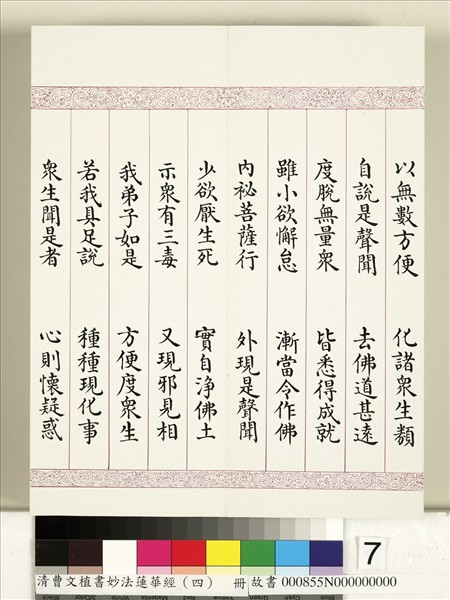 以無數方便 化諸衆生類
自說是聲聞 去佛道甚遠
度脫無量衆 皆悉得成就
雖小欲懈怠 漸當令作佛
內祕菩薩行 外現是聲聞
少欲厭生死 實自淨佛土
示衆有三毒 又現邪見相
我弟子如是 方便度衆生
若我具足說 種種現化事
衆生聞是者 心則懷疑惑
7
清曹文植書妙法蓮華經（四） 冊 故書 000855N000000000